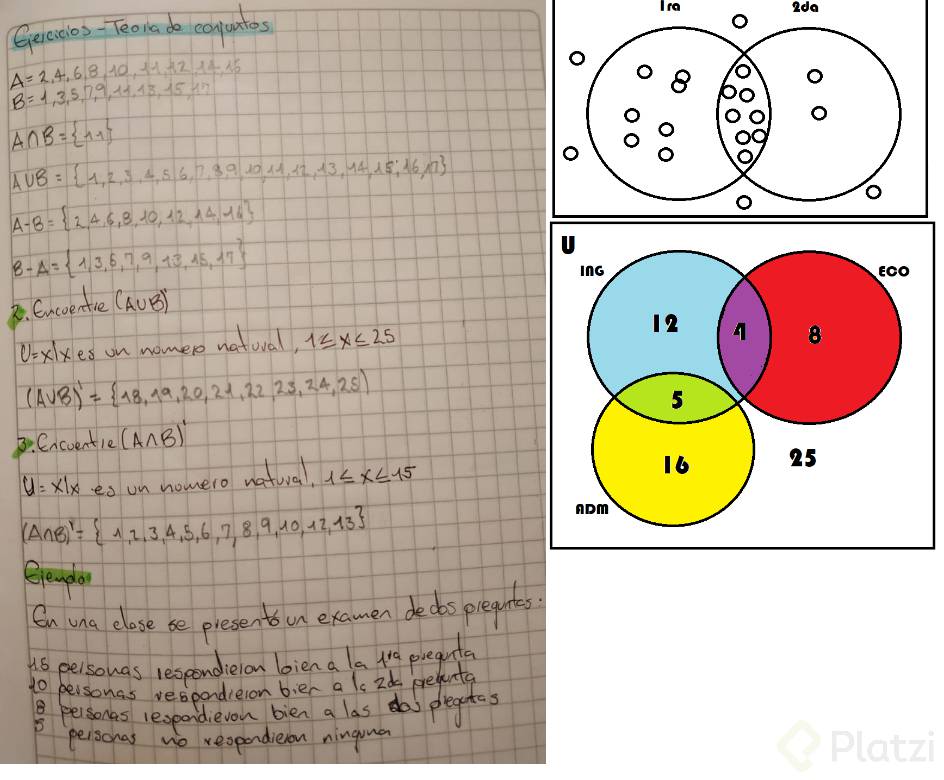 Ejercicios - Teoria de conjuntos
A = 2,4,6,8,10,11,12,14,15
B = 1,3,5,7,9,11,13,15,17
A∩B = {11}
A∪B = {1,2,3,4,5,6,7,8,9,10,11,12,13,14,15,16,17}
A-B = {2,4,6,8,10,12,14,16}
B-A = {1,3,5,7,9,13,15,17}
2. Encuentre (A∪B)'
U=x|x es un numero natural, 1≤x≤25
(A∪B)' = {18,19,20,21,22,23,24,25)
3. Encuentre (A∩B)'
U=x|x es un numero natural, 1≤x≤15
(A∩B)' = {1,2,3,4,5,6,7,8,9,10,12,13}
Ejemplo
En una clase se presentó un examen de dos preguntas:
15 personas respondieron bien a la 1ra pregunta
10 personas respondieron bien a la 2da pregunta
8 personas respondieron bien a las dos preguntas
5 personas no respondieron ninguna
1ra 2da
U
ING ECO
12 4 8
5
16 25
ADM
Platzi